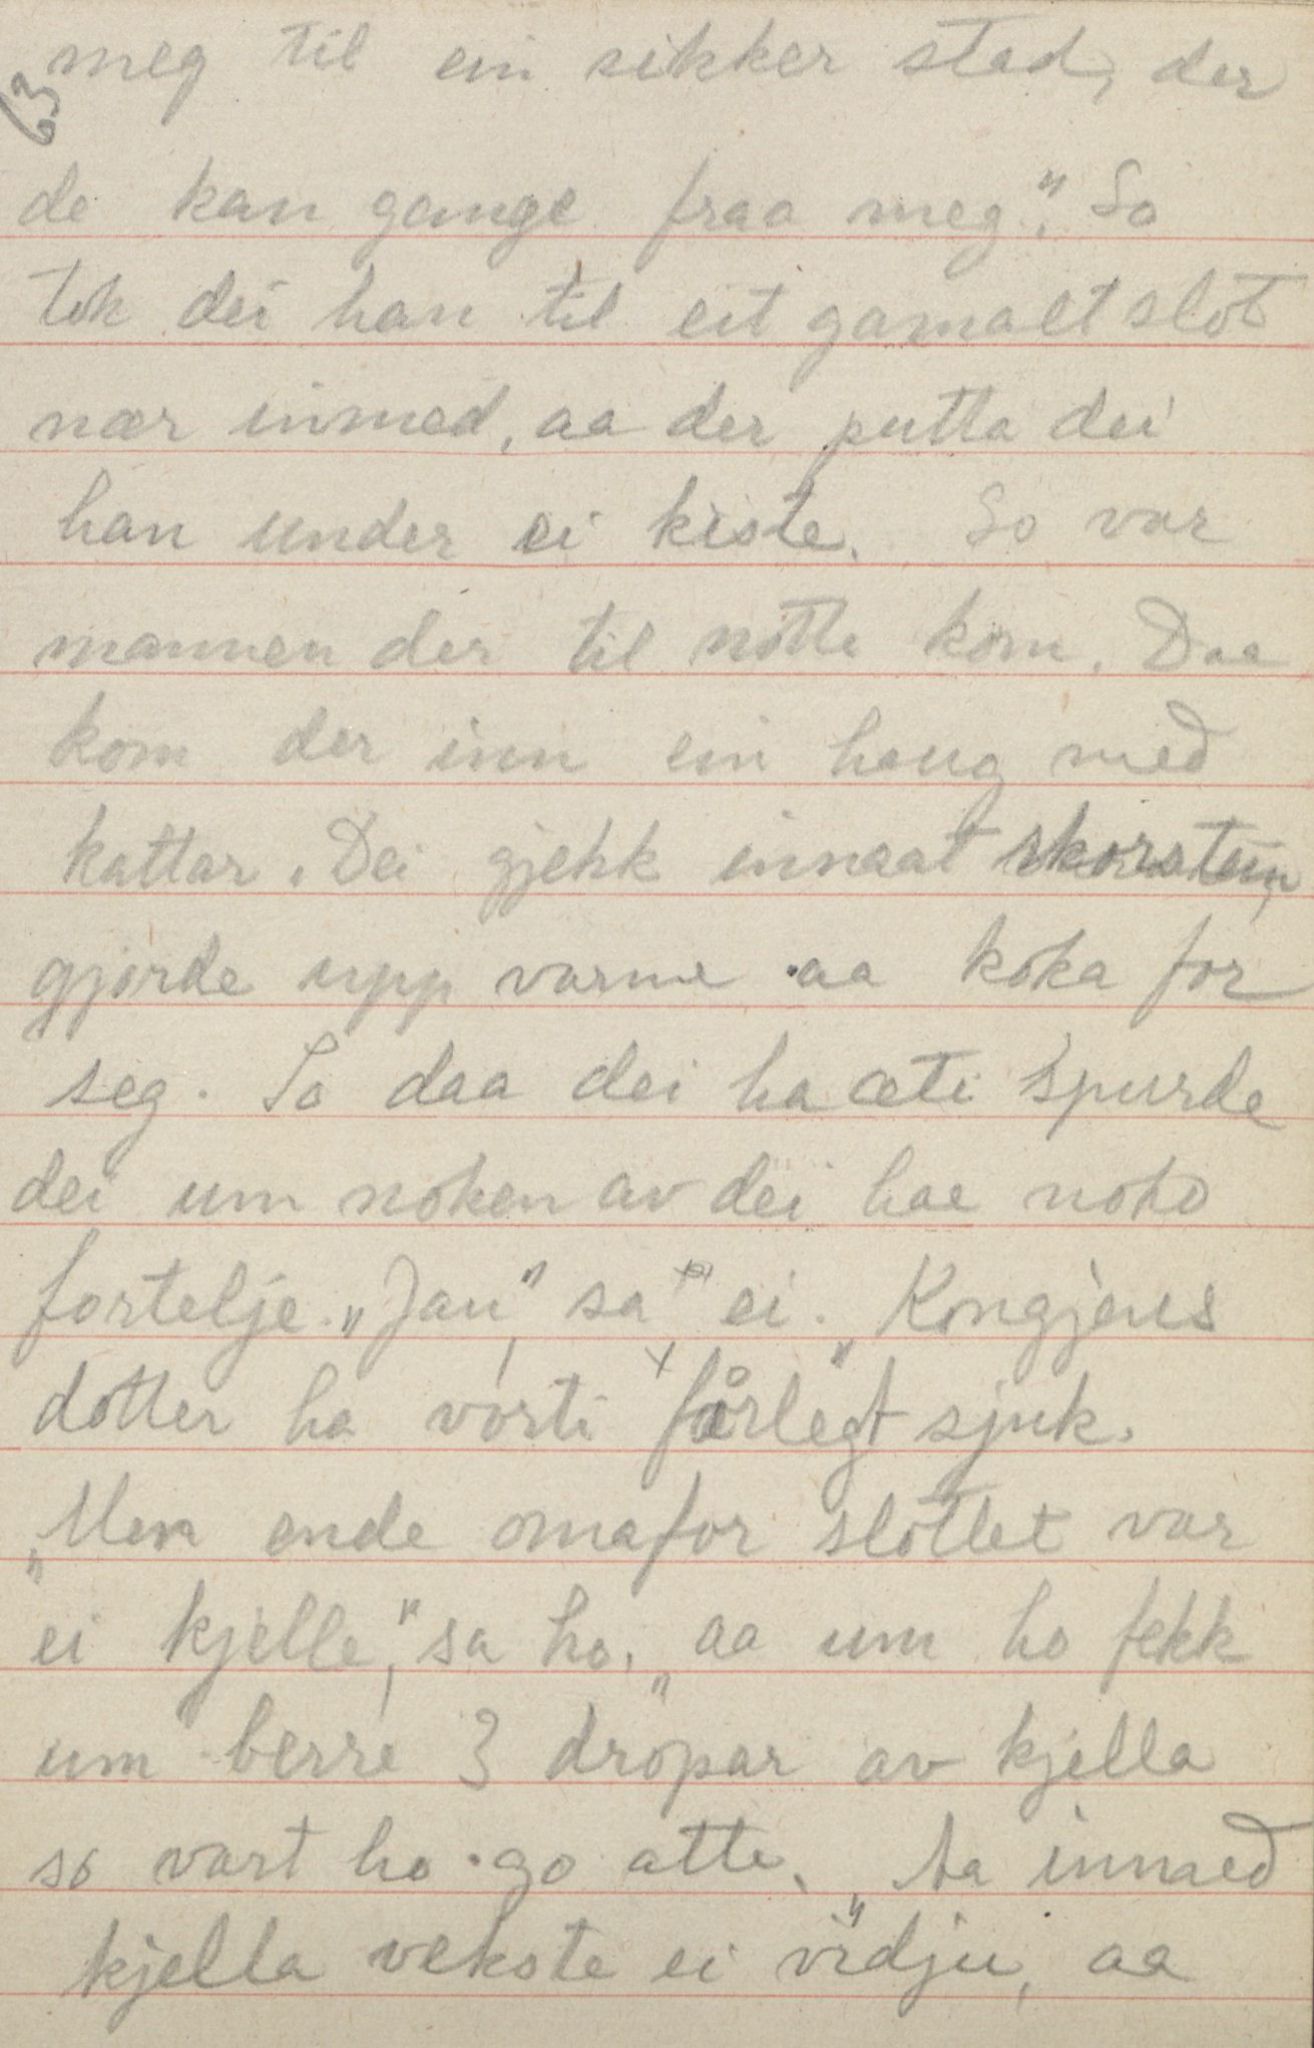 63
meg til ein sikker stad, der
de kan gange fraa meg." So
tok dei han til eit gamalt slot
nær innmed, aa der putta dei
han under ei kiste. So var
mannen der til notte kom. Daa
kom der inn ein haug med
kattar. Dei gjekk innaat skorstein,
gjorde upp varme aa koka for
seg. So daa dei ha æti spurde
dei um noken av dei hae noko
fortelje. „Jau", sa ei. „Kongjens
dotter ha vorti fårlegt sjuk.
„Men ende omafor slottet var
ei kjelle," sa ho, „aa um ho fekk
um berre 3 dropar av kjella
so vart ho go atte. „Aa innaed
kjella vekste ei vidju, aa